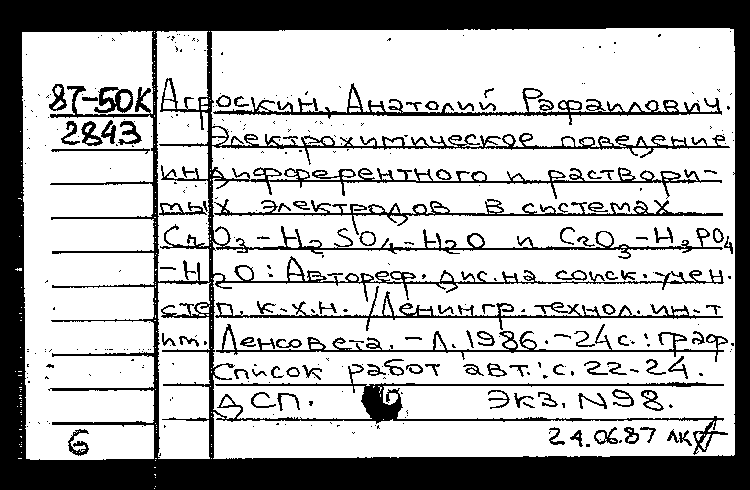 87-50К Агроскин, Анатолий Рафаилович.
2843 Электрохимическое поведение
индифферентного и раствори-
мых электродов в системах
CrO3-H2SO4-H2O и CrO3-H3PO4
-H2O: Автореф. дис. на соиск. учен.
степ. к.х.н. /Ленингр. технол. ин-т
им. Ленсовета. - Л. 1986. - 24 с.: граф.
Список работ авт.: с. 22-24.
ДСП. Экз. N98.
6 24.06.87 лк